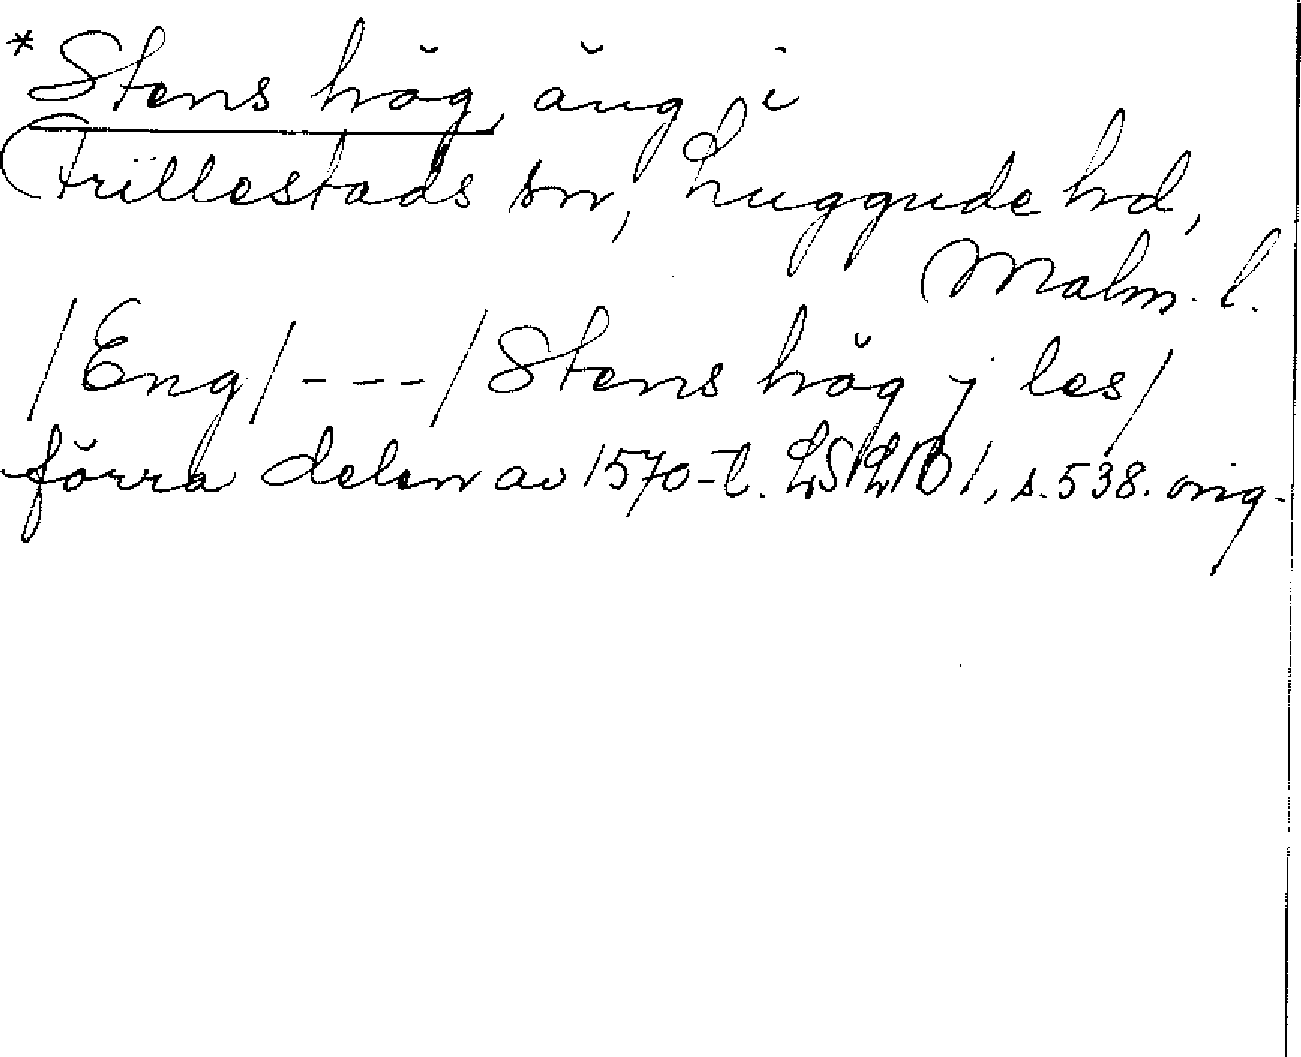 *Stens hög, äng i
Frillestads sn, Luggude hd,
Malm. l.
/Eng/ - - - / Stens hög j les/
förra delen av 1570-t. LSLB 1, s. 538. orig.